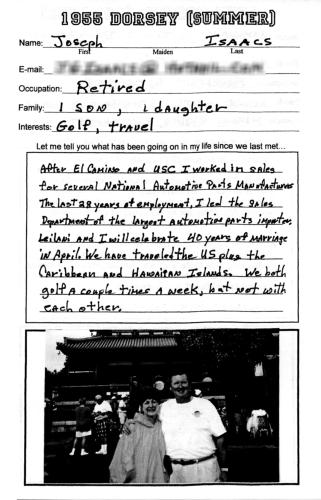 1955 DORSEY (SUMMER)
Name: Joseph ISAACS
First Maiden Last
E-mail:
Occupation: Retired
Family: 1 SON, 1 daughter
Interests: Golf, travel
Let me tell you what has been going on in my life since we last met...
After El Camino and USC I worked in sales
for several National Automotive Parts Manufactures
The last 28 years of employment, I led the Sales
Department of the largest automotive parts importer.
Leilani and I will celebrate 40 years of marriage
in April. We have traveled the US plus the
Caribbean and Hawaiian Islands. We both
golf a couple times a week, but not with
each other.